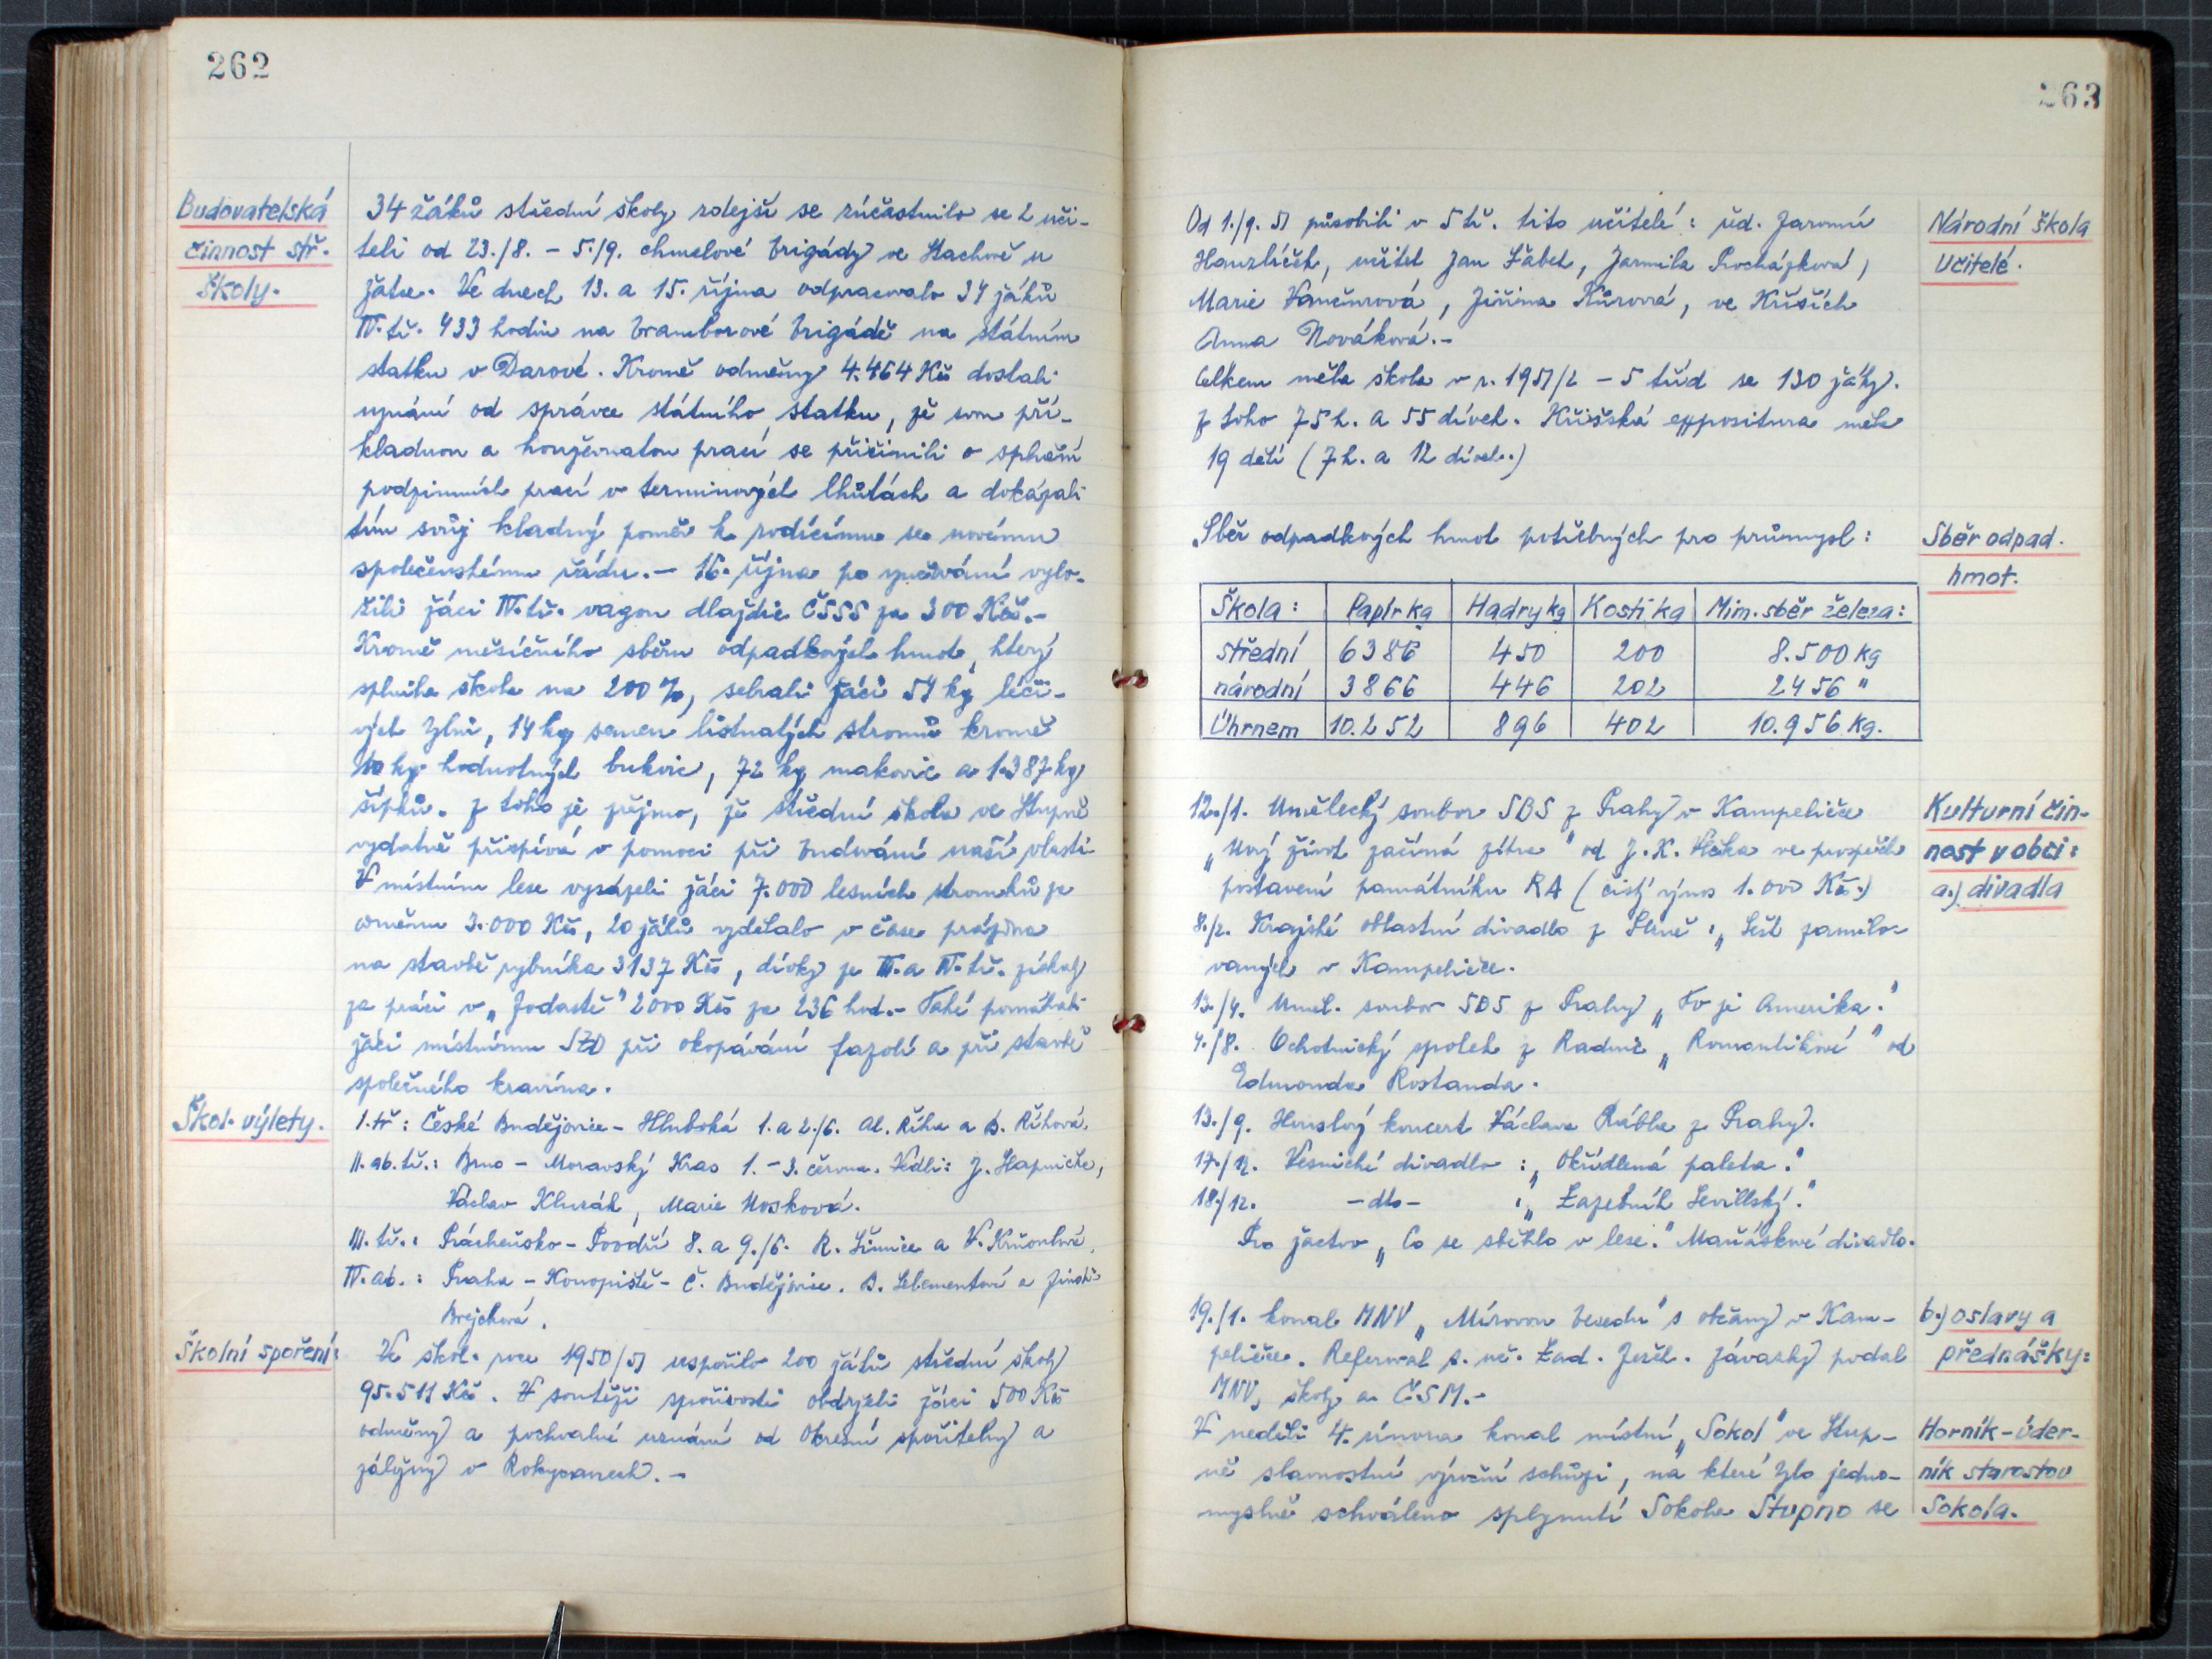 262
Budovatelská
činnost stř.
školy.
34 žáků střední školy zdejší se zúčastnilo se 2 uči-
teli od 23./8. - 5./9. chmelové brigády ve Stachově u
Žatce. Ve dnech 13. a 15. října odpracovalo 34 žáků
IV. tř. 433 hodin na bramborové brigádě na státním
statku v Darové. Kromě odměny 4.464 Kčs dostali
uznání od správce státního statku, že svou pří-
kladnou a houževnatou prací se přičinili o splnění
podzimních prací v termínových lhůtách a dokázali
tím svůj kladný poměr k rodícímu se novému
společenskému řádu. - 16. října po vyučování vylo-
žili žáci IV. tř. vagon dlaždic ČSSS za 300 Kčs. -
Kromě měsíčního sběru odpadkových hmot, který
splnila škola na 200 %, sebrali žáci 54 kg léči-
vých bylin, 14 kg semen listnatých stromů kromě
10 kg hodnotných bukvic, 72 kg makovic a 1.387 kg
šípků. Z toho je zřejmo, že střední škola ve Stupně
vydatně přispívá v pomoci při budování naší vlasti
V místním lese vysázeli žáci 7.000 lesních stromků za
odměnu 3.000 Kčs, 20 žáků vydělalo v čase prázdnin
na stavbě rybníka 3137 Kčs, dívky ze III. a IV. tř. získaly
za práci v „Jodastě" 2000 Kčs za 236 hod. - Také pomáhali
žáci místnímu JZD při okopávání fazolí a při stavbě
společného kravína.
Škol. výlety.
I. tř: České Budějovice - Hluboká 1. a 2./6. Al. Říha a B. Říhová.
II. ab. tř.: Brno - Moravský Kras 1. - 3. června. Vedli: J. Hapnicke,
Václav Klusák, Marie Nosková.
III. tř.: Prácheňsko - Povodí 8. a 9./6. R. Šimice a V. Krňoulová,
IV. ab.: Praha - Konopiště - Č. Budějovice. B. Selementová a
Brejchová.
Školní spoření:
Ve škol. roce 1950/51 uspořilo 200 žáků střední školy
95.511 Kčs. V soutěži spořivosti obdrželi žáci 500 Kčs
odměny a pochvalné uznání od Okresní spořitelny a
záložny v Rokycanech. -
263
Od 1./9. 51 působili v 5 tř. tito učitelé: řed. Jaromír
Hanzlíček, učitel Jan Žábek, Jarmila Procházková,
Marie Vančurová, Jiřina Kůrová, ve Kříších
Anna Nováková. -
Celkem měla škola v r. 1951/2 - 5 tříd se 130 žáky.
z toho 75 h. a 55 dívek. Kříšská expositura měla
19 dětí (7 h. a 12 dívek.)
Národní škola
Učitelé.
Sběr odpadkových hmot potřebných pro průmysl:
Sběr odpad.
hmot.
Škola: Papír kg Hadry kg Kosti kg Mim. sběr železa:
střední 6386 450 200 8.500 kg
národní 3866 446 202 2456 "
Úhrnem 10.252 896 402 10.956 kg.
12./1. Umělecký soubor SBS z Prahy v Kampeličce
„Nový život začíná zítra" od J. K. Vlčka ve prospěch
postavení památníku RA (čistý výnos 1.000 Kčs.)
8./2. Krajské oblastní divadlo z Plzně: „Šest zamilo-
vaných v Kampeličce.
13./4. Uměl. soubor SBS z Prahy „To je Amerika."
4./8. Ochotnický spolek z Radnic „Romantikové" od
Edmonda Rostanda.
13./9. Houslový koncert Václava Rábla z Prahy.
17./12. Vesnické divadlo: „Okřídlená paleta."
18./12. - dto - : „Lazebník Sevillský."
Pro žactvo „Co se sběhlo v lese." Maňáskové divadlo.
Kulturní čin-
nost v obci:
a.) divadla
19./1. konal MNV „Mírovou besedu" s občany v Kam-
peličce. Referoval s. uč. Lad. Jezl. Závazky podal
MNV, školy a ČSM. -
b.) oslavy a
přednášky:
V neděli 4. února konal místní „Sokol" ve Stup-
ně slavnostní výroční schůzi, na které bylo jedno-
myslně schváleno splynutí Sokola Stupno se
Horník-úder-
ník starostou
Sokola.